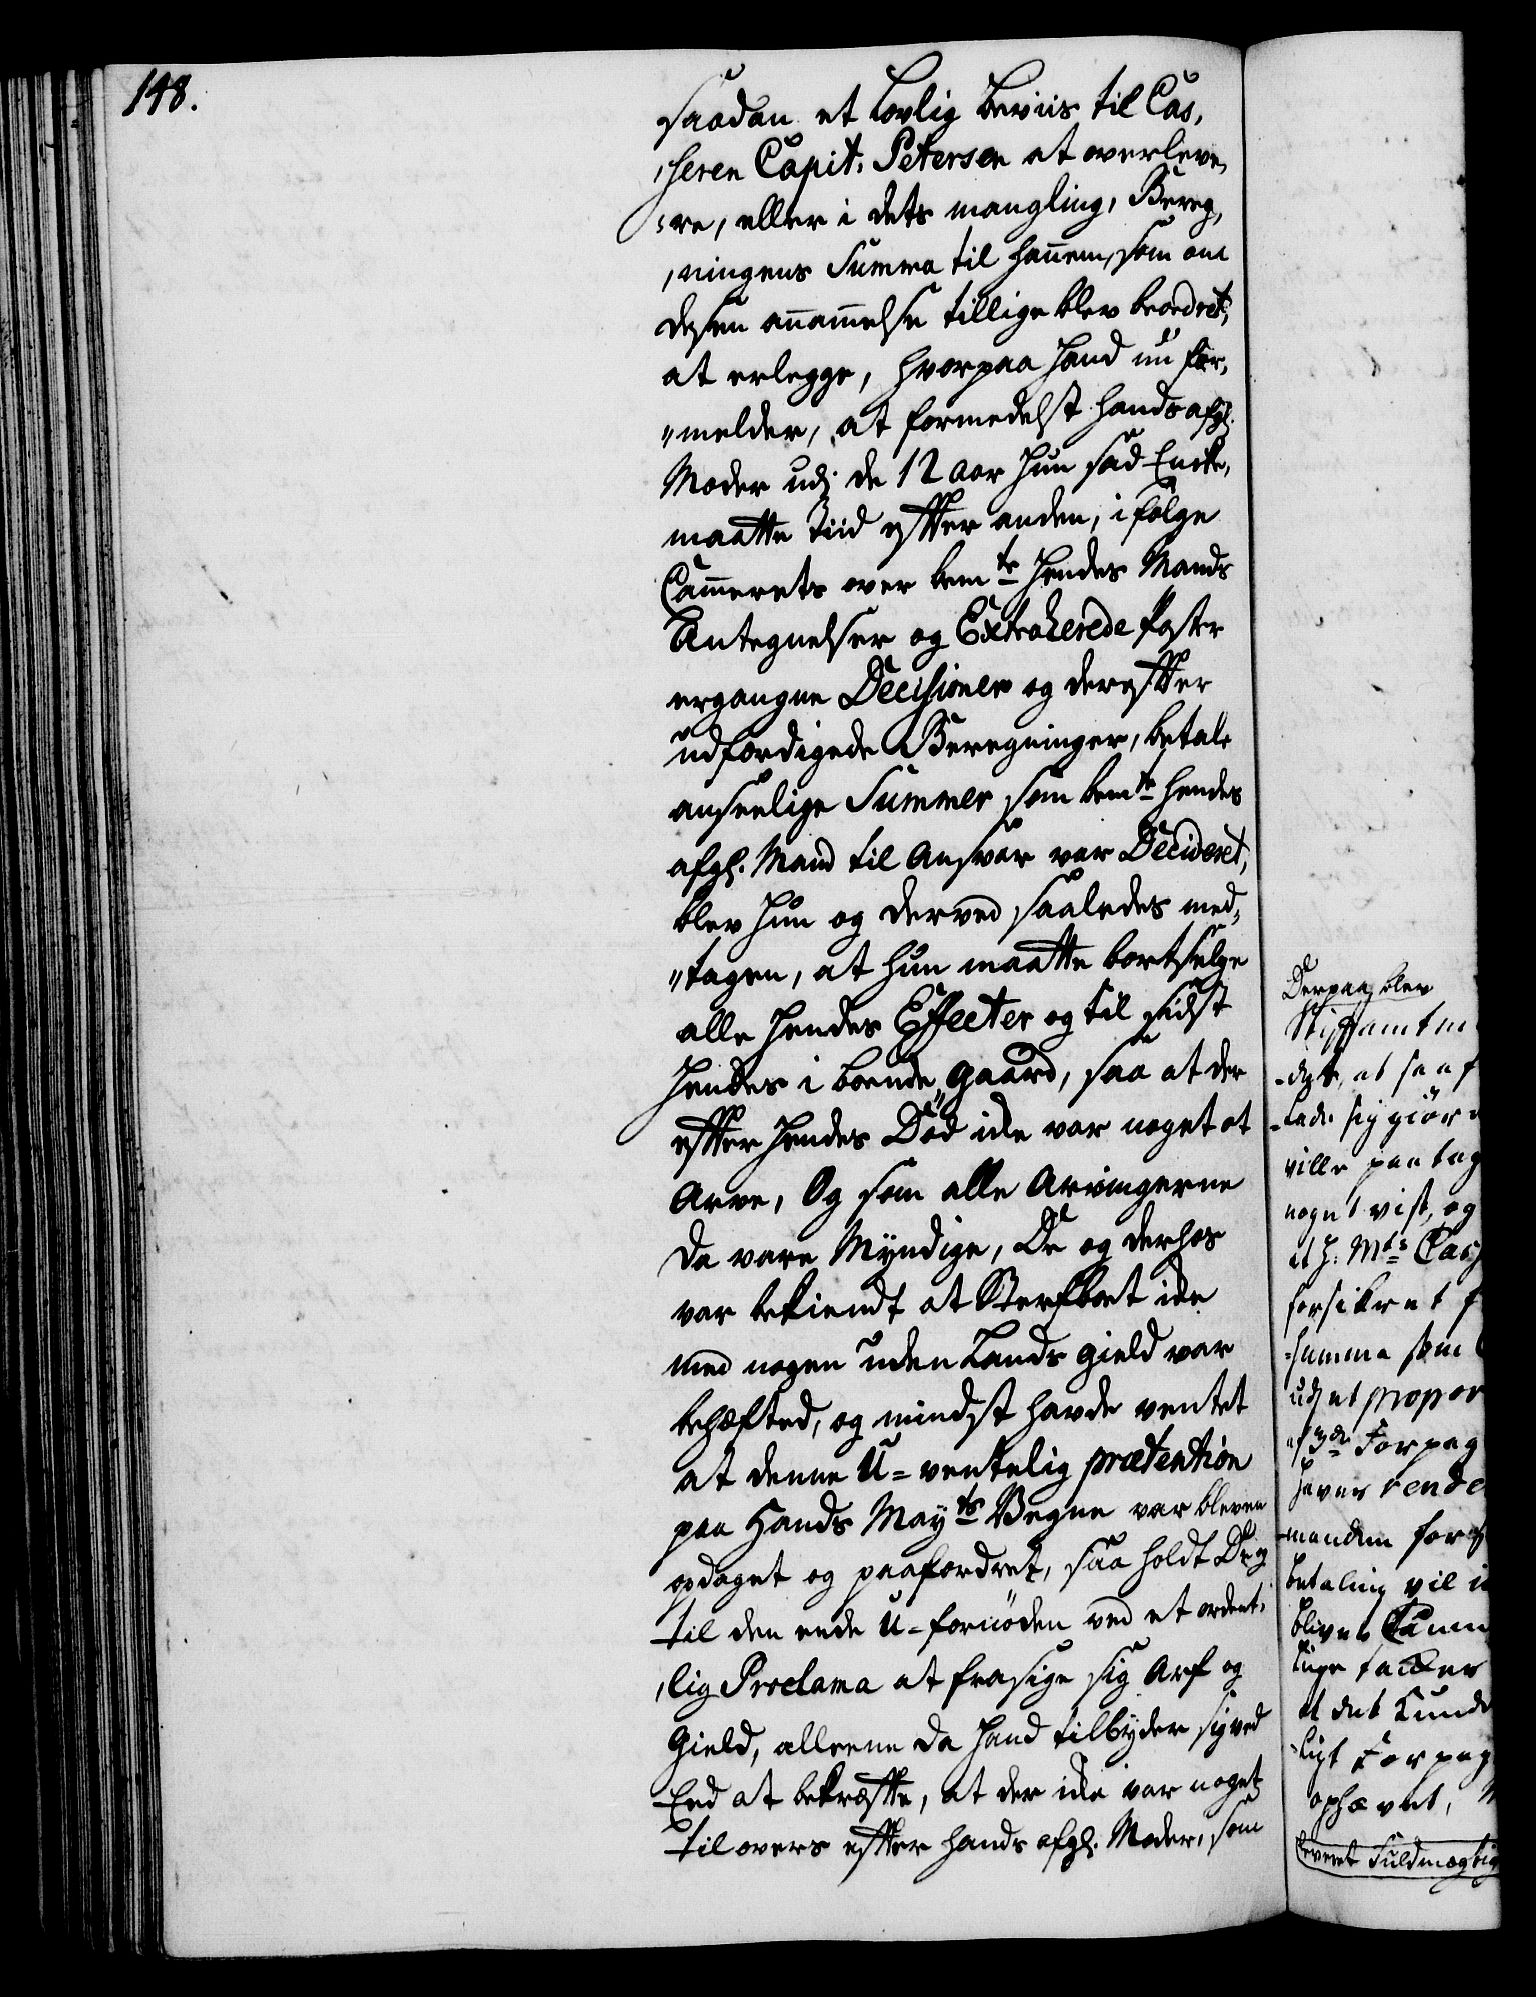 148.
saadan et Lovlig Beviis til Cas,
,seren Capit: Petersen at overleve,
,re, eller i dets mangling, Bereg,
,ningens Summa til hannem, som om
dessen annammelse tillige blev beordret,
at erlegge, hvorpaa Hand nu for,
„melder, at formedelst hands afgl.
Moder udj de 12 aar Hun sad Encke,
maatte Tiid efter anden, i følge
Cammerets over bemte Hendes Mands
Antegnelser og Extraherede Poster
ergangne Decisioner og derefter
udferdigede Beregninger, betale
anseelige Summer som bemte hendes
afgl. Mand til Ansvar var Decideret,
blev Hun og derved saaledes med,
„tagen, at hun maatte bortselge
alle Hendes Effecter og til sidst
Hendes i boende Gaard, saa at der
efter Hendes Død icke var noget at
Arve, Og som alle Arvingerne
da vare Myndige, De og derhos
var bekiendt at Sterfboet icke
med nogen uden Lands gield var
behæfted, og mindst havde ventet
at denne U-ventelig prætention
paa Hands Mayts Vegne var bleven
opdaget og paafordret, saa holdt De og
til den ende U-fornöden ved et ordent,
,lig Proclama at frasige sig Arf og
Gield, alleene da Hand tilbyder sig ved
Eed at bekræfte, at der icke var noget
til overs efter hands afgl. Moder, som
Derpaa blev
Stiftamtm
ville paatag
noget vist, og
forsikret
summa som
Forpag
betaling vil
at det kunde
ligt Forpag
ophævet,
leveret Fuldmægtig